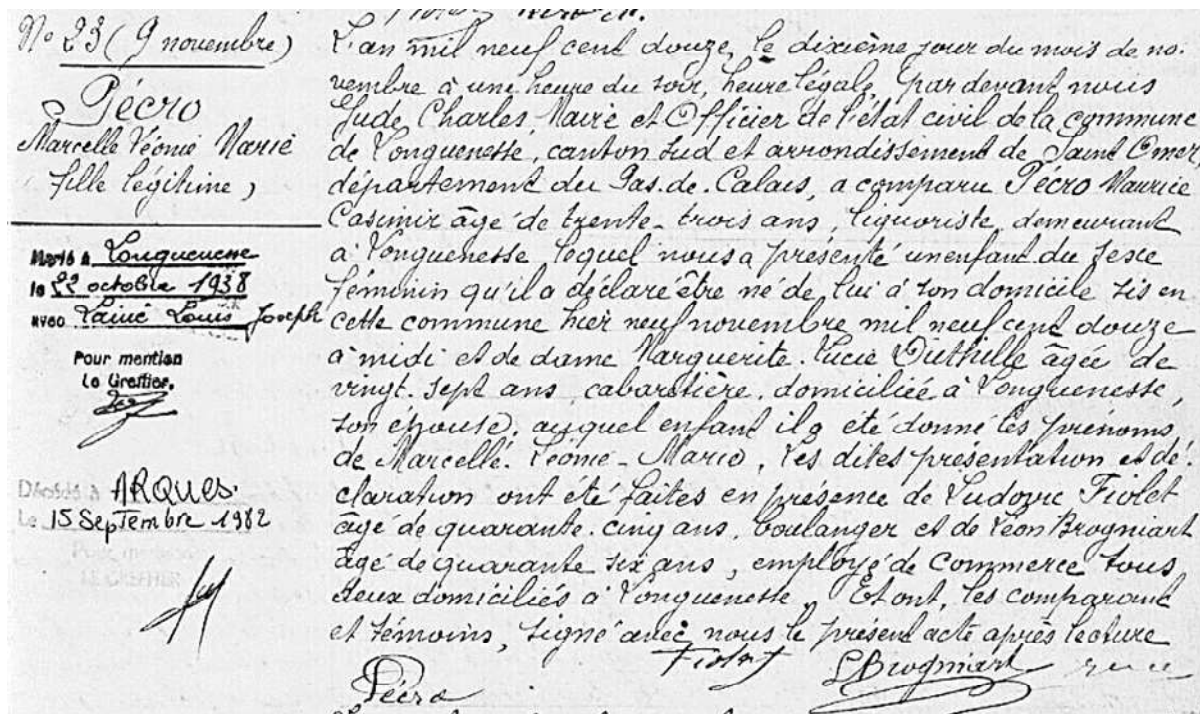 N° 23 (9 novembre)
Pécro
Marcelle Léonie Marie
fille légitime,
Marié à Longuenesse
le 22 octobre 1938
avec Lainé Louis Joseph
Pour mention
Le Greffier.
Décédé à ARQUES.
Le 15 Septembre 1982
Pour mention
LE GREFFIER
L'an mil neuf cent douze, le dixième jour du mois de no-
vembre à une heure du soir, heure légale, par devant nous
Jude, Charles, Maire et Officier de l'état civil de la commune
de Longuenesse, canton sud et arrondissement de Saint Omer,
département du Pas-de-Calais, a comparu Pécro Maurice
Casimir âgé de trente-trois ans, liquoriste, demeurant
à Longuenesse, lequel nous a présenté un enfant du sexe
féminin qu'il a déclaré être né de lui à son domicile sis en
cette commune hier neuf novembre mil neuf cent douze
à midi et de dame Marguerite Lucie Duthille âgée de
vingt-sept ans cabaretière, domiciliée à Longuenesse,
son épouse, auquel enfant il a été donné les prénoms
de Marcelle-Léonie-Marie, Les dites présentation et dé-
claration ont été faites en présence de Ludovic Fiolet
âgé de quarante-cinq ans, boulanger et de Léon Brogniart
âgé de quarante six ans, employé de Commerce tous
deux domiciliés à Longuenesse. Et ont, les comparant
et témoins, signé avec nous le présent acte après lecture
Pécro Fiolet L Brogniart